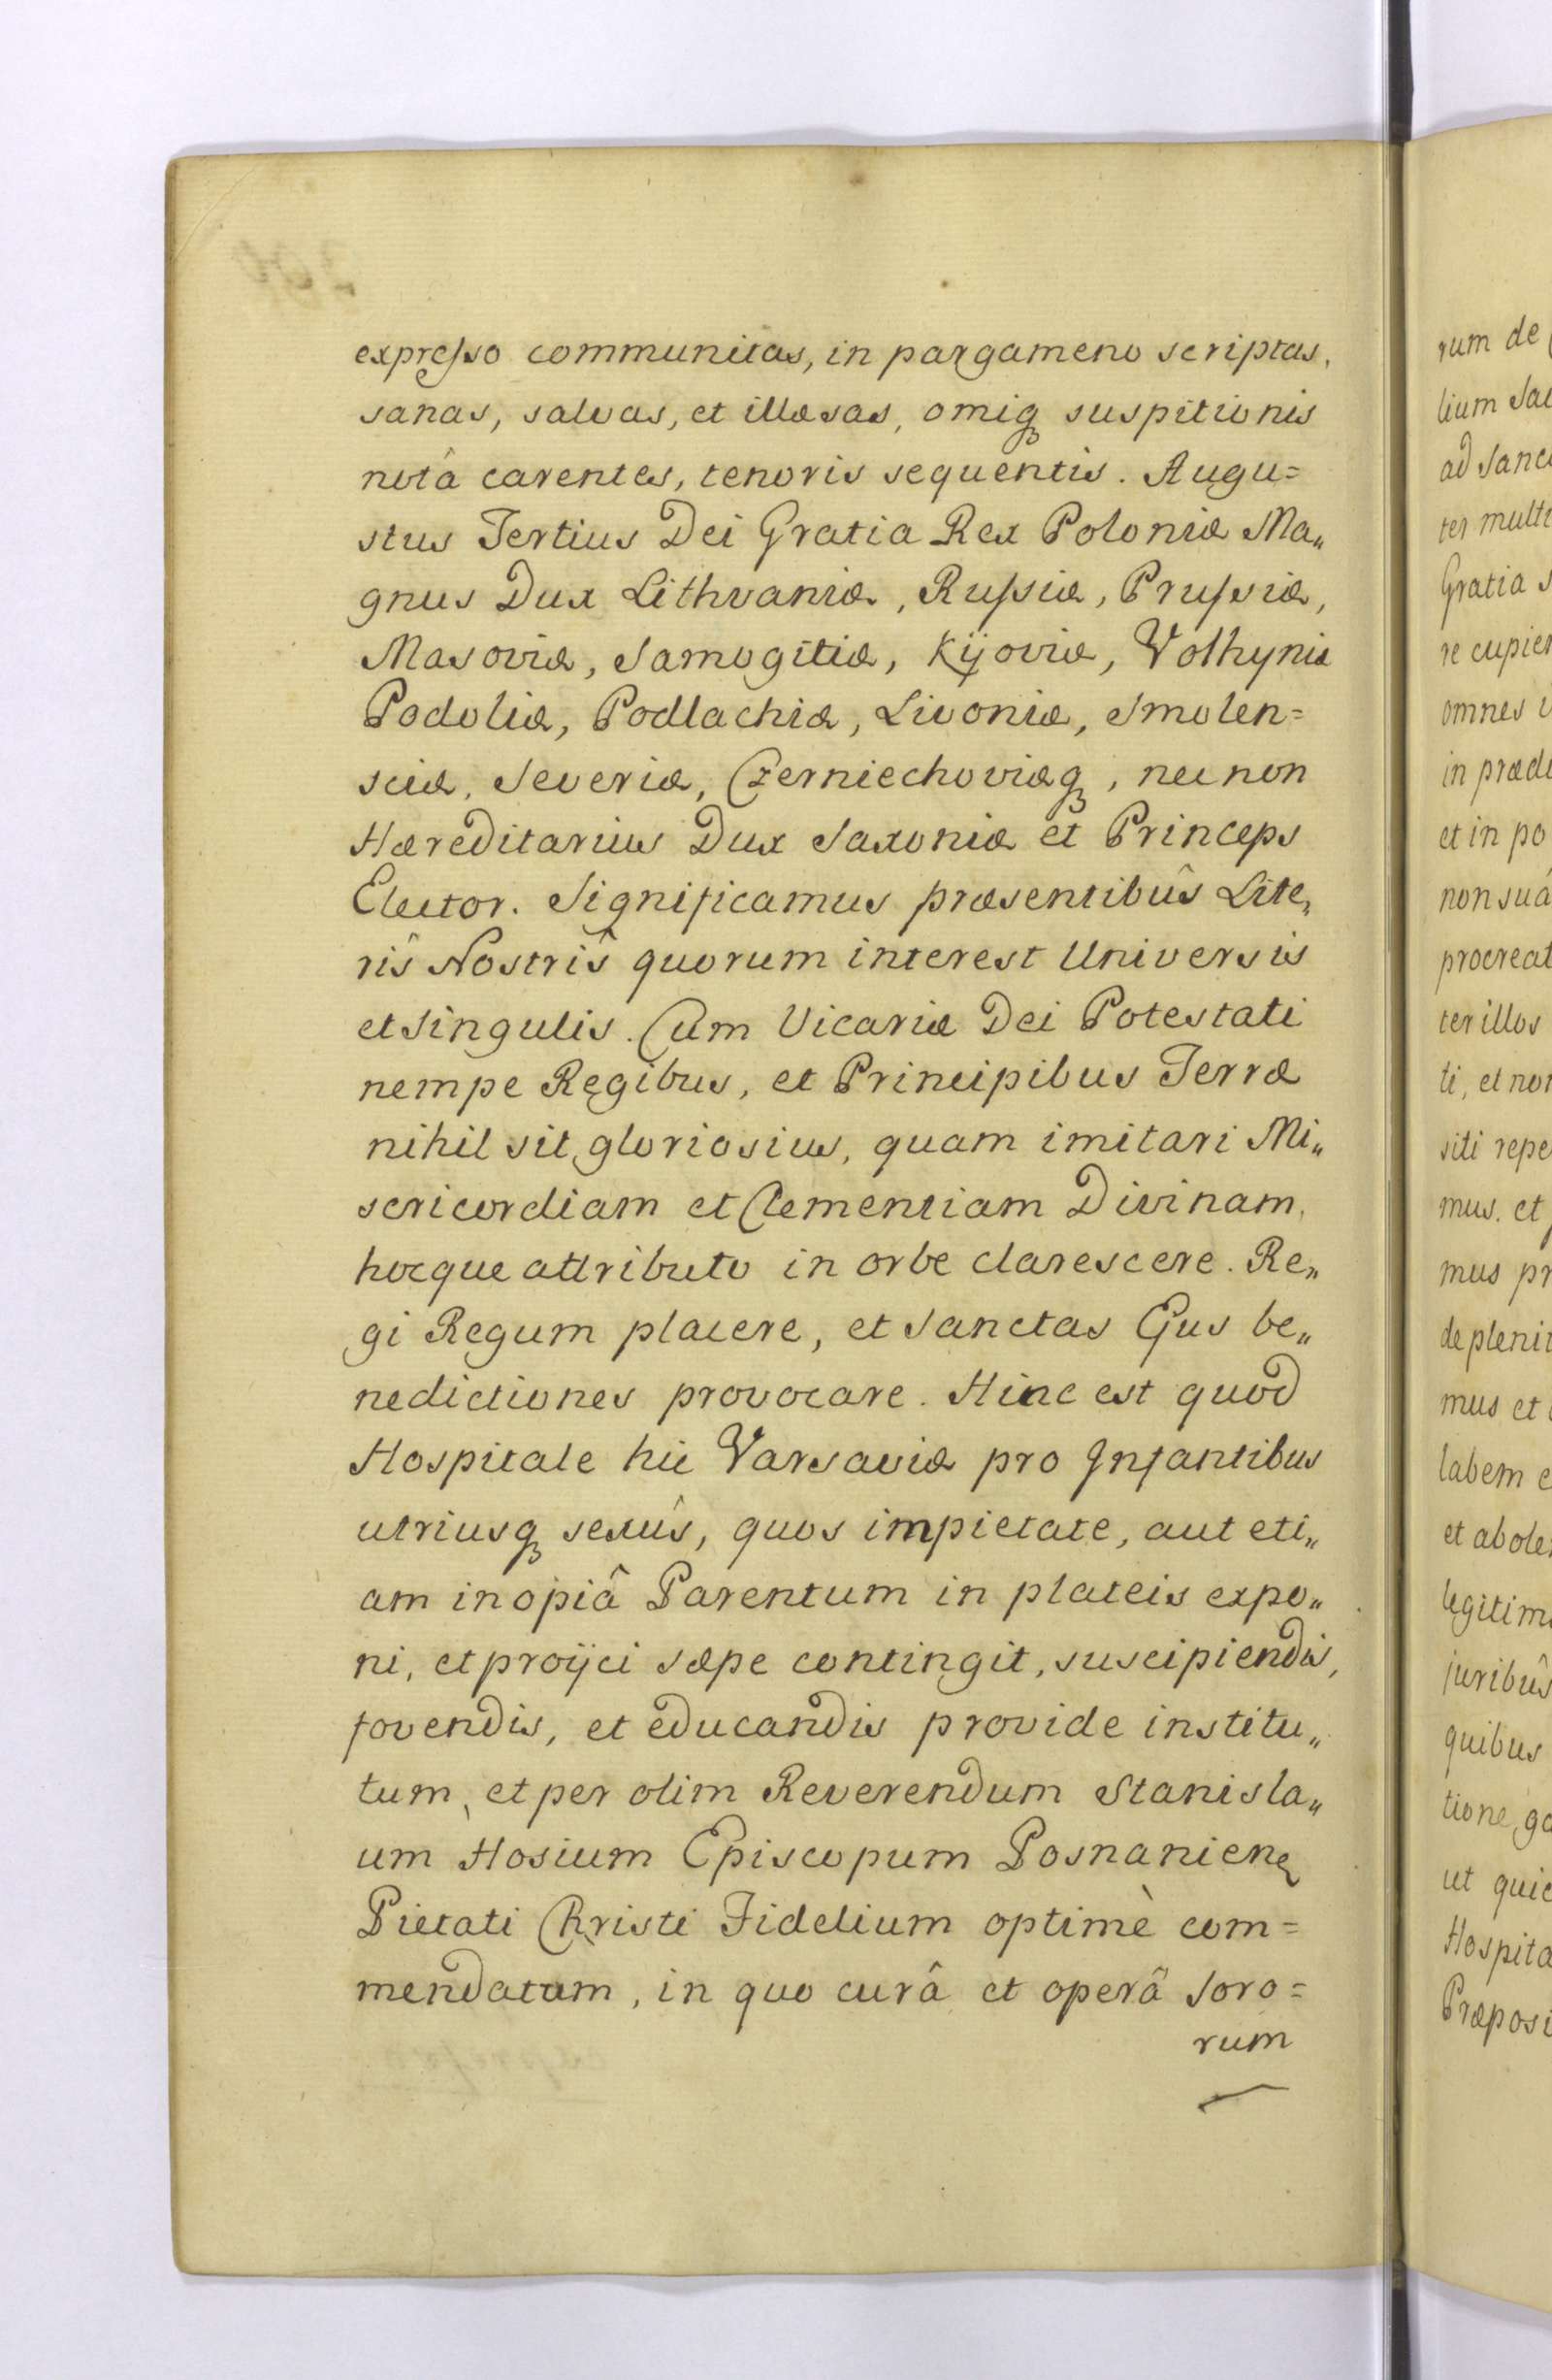 expresso communitas, in pargameno scriptas,
sanas, salvas, et illæsas, omiq3 suspitionis
notâ carentes, tenoris sequentis. Augu=
stus Tertius Dei Gratia Rex Poloniæ Ma„
gnus Dux Lithvaniæ, Russiæ, Prussiæ,
Masoviæ, Samogitiæ, Kÿoviæ, Volhyniæ
Podoliæ, Podlachiæ, Livoniæ, Smolen=
sciæ, Severiæ, Czerniechoviæq3, nec non
Hæreditarius Dux Saxoniæ et Princeps
Elector. Significamus præsentibûs Lite„
rîs Nostrîs quorum interest Universis
et singulis. Cum Vicariæ Dei Potestati
nempe Regibus, et Principibus Terræ
nihil sit gloriosius, quam imitari Mi„
sericordiam et Clementiam Divinam,
hocque attributo in orbe clarescere. Re„
gi Regum placere, et Sanctas Ejus be„
nedictiones provocare. Hinc est quod
Hospitale hic Varsaviæ pro Infantibus
utriusq3 sexûs, quos impietate, aut eti„
am inopiâ Parentum in plateis expo„
ni, et proÿci sæpe contingit, suscipiendis,
fovendis, et educandis provide institu„
tum, et per olim Reverendum Stanisla„
um Hosium Episcopum Posnanien
Pietati Christi Fidelium optimè com=
mendatum, in quo curâ et operâ Soro=
rum
rum de
lium Sac
ad Sanc
ter multi
Gratia s
re cupien
omnes
in prædi
et in po
non suâ
procreat
ter illos
ti, et non
siti repe
mus. et
mus pr
de pleni
mus et
labem e
et abole
legitim
juribûs
quibus
tione, ga
ut quic
Hospita
Præposi